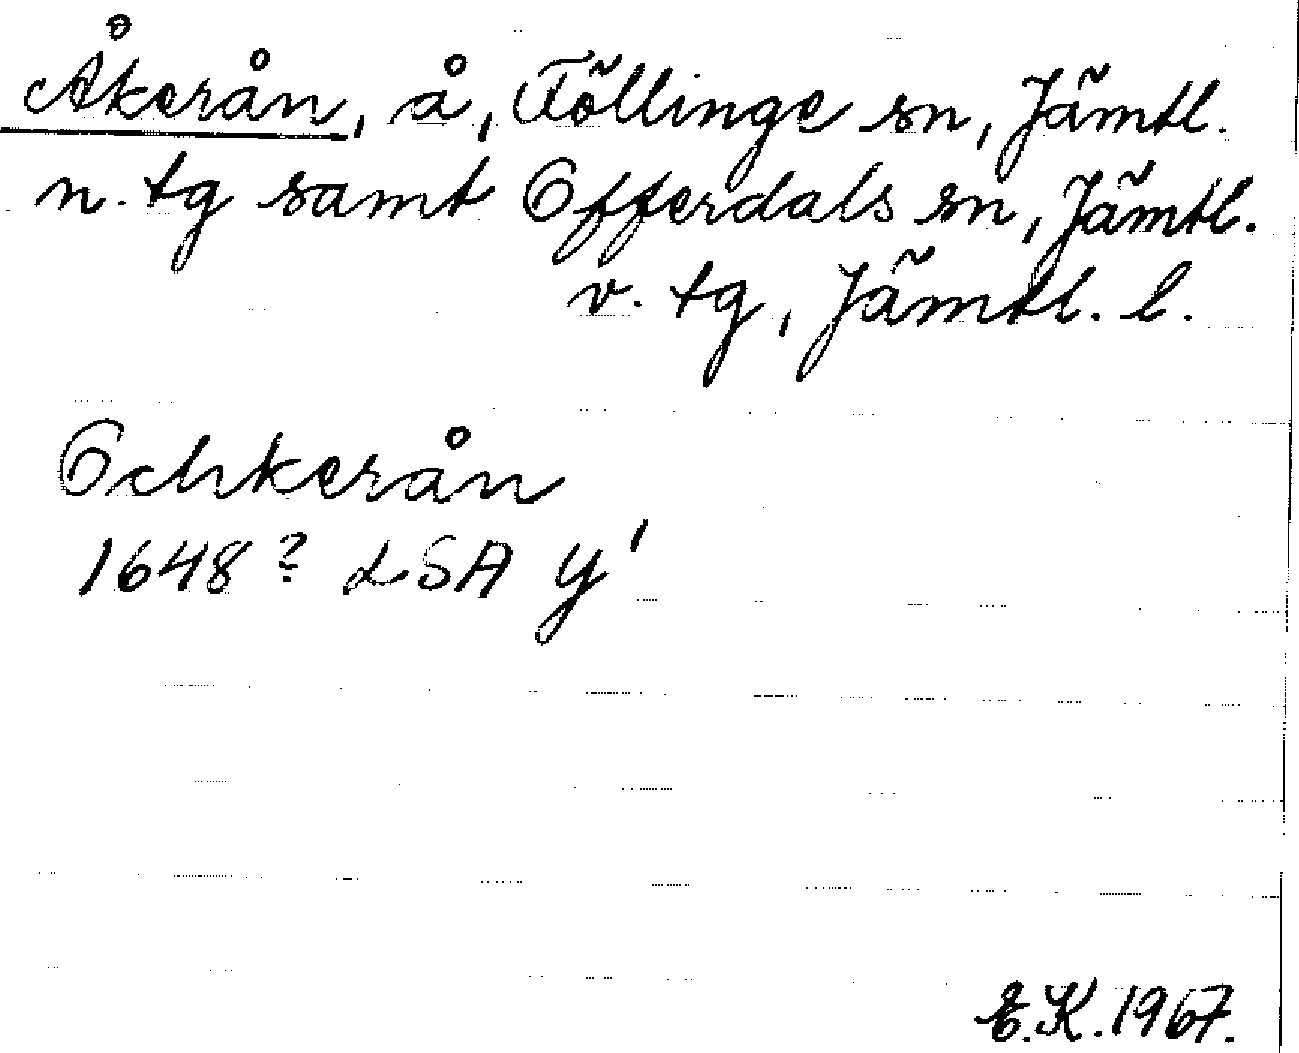 Åkerån, å, Föllinge sn, Jämtl.
n. tg samt Offerdals sn, Jämtl.
v. tg, Jämtl. l.
Ochkerån
1648? LSA Y'
E.K. 1967.